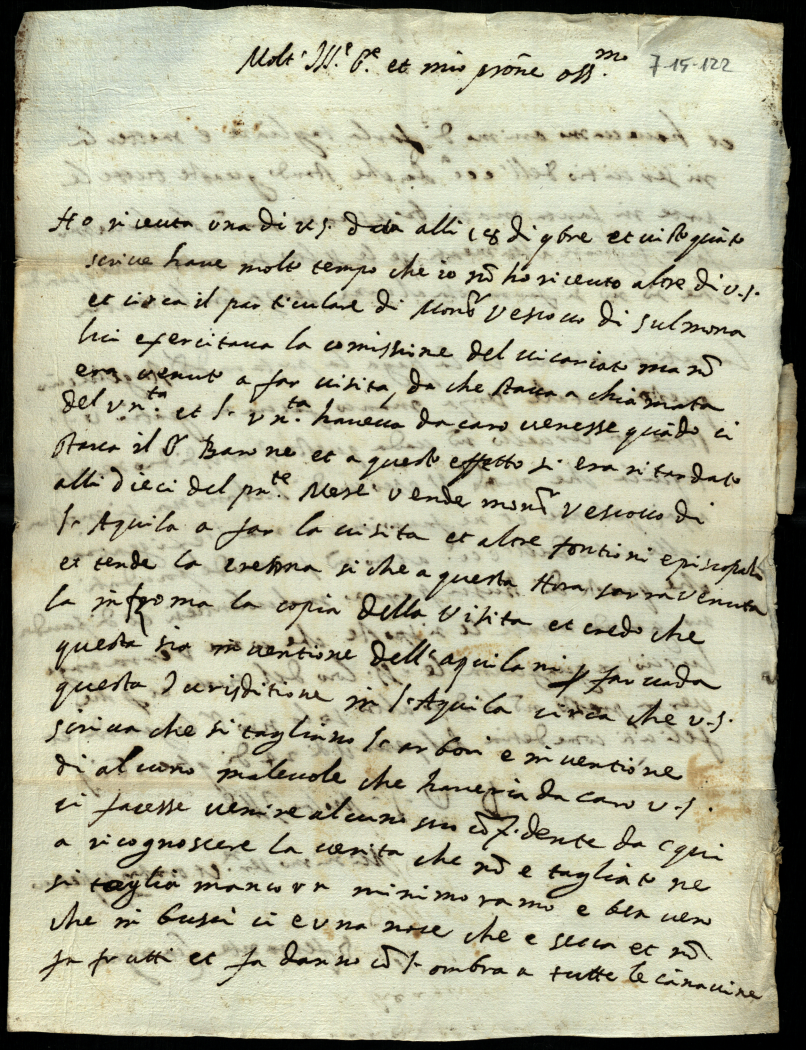 Molt' Ill.e S.e et mio prōne oss.mo 7-15-122
Ho riceuta una di v.s. data alli 18 di 9bre et visto quāto
scrive have molto tempo che io nō ho riceuto altre di v.s.
et circa il particulare di Monsr Vescovo di Sulmona
lui exercitava la comissione del vicariato ma nō
era venuto a far visita, da che stava a chiamata
del vn.ta et l'vn.ta haveva da caro venesse quādo ci
stava il S. Barone et a questo effetto si era ritardato
alli Dieci del pnte Mese vende monsr Vescovo di
l'Aquila a far la visita et altre fontioni episcopali
et tende la cresma si che a questa Hora sarra venuta
la in la copia della visita et credo che
questa sia inventione dell'aquilani p far cada
questa Jurisditione in l'Aquila circa che v.s.
scriva che si tagliano l'arbori e inventione
di alcuno malevole che haveria da caro v.s.
ci facesse venire alcuno suo cōfidente da qui
a ricognoscere la verita che nō e tagliato ne
si taglia manco un minimo ramo e ben vero
che in bussi ci e una noce che e secca et nō
fa frutti et fa danno cō l'ombra a tutte le canavine